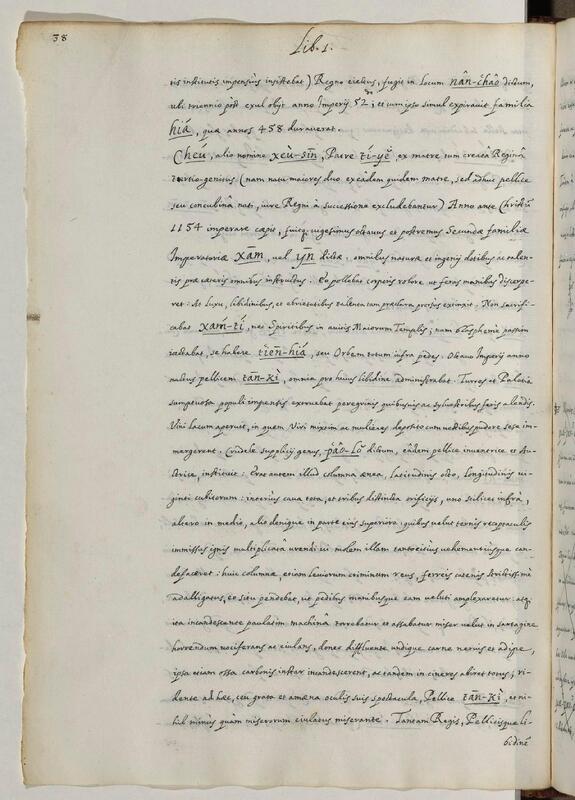 38
Lib. 1.
tis institutis impensiùs insistebat) Regno eiectus, fugit in Locum nân-chaô dictum,
ubi triennio pòst exul obijt anno Imperij 52; et cum ipso simul expirauit familia
hiá, quæ annos 458 durauerat.
Cheú, alio nomine xeù-sin, Patre tí-yĕ, ex matre tum creata Regina
tertio-genitus (nam natu maiores duo ex eadem quidem matre, sed adhuc pellice
seu concubina nati, iure Regni à successione excludebantur) Anno ante Christum
1154 imperare cæpit, fuitq. uigesimus octauus et postremus Secundæ familiæ
Imperatoriæ xām, uel yn dictæ. omnibus naturæ et ingenij dotibus ac talen-
tis præ cæteris omnibus instructus. Eo pollebat corporis robore ut feras manibus discerpe-
ret: At Luxu, libidinibus, et ebrietatibus talenta tam præclara prorsus extinxit. Non sacrifi-
cabat xam̄-tí, nec Spiritibus in auitis Maiorum Templis; nam blasphemiæ passim
iactabat, se habere tien-hiá, seu Orbem totum infra pedes. Octauo Imperij anno
nactus pellicem tân-kì, omnia pro huius libidine administrabat. Turres et Palatia
sumptuosa populi impensis extruebat peregrinis quibusuis ac syluestribus feris alendis.
Vini lacum aperuit, in quem Viri mixtim ac mulieres deposito cum uestibus pudore sese im-
mergerent. Crudele supplicij genus, páo-Lŏ dictum, eâdem pellice inuentrice et Au-
ctrice, instituit: Erat autem illud columna ænea, latitudinis octo, Longitudinis ui-
ginti cubitorum: interius caua tota, et tribus distincta orificijs, uno scilicet infrà,
altero in medio, alio denique in parte eius superiore: quibus uelut ternis receptaculis
immissus ignis multiplicatâ urendi ui molem illam tanto citius uehementiusque can-
defaceret: huic columnæ, etiam Leuiorum criminum reus, ferreis catenis strictissimè
adalligatus, eo situ pendebat, ut pedibus manibusque eam ueluti amplexaretur: atq.
ita incandescente paulatim machinâ torrebatur et assabatur miser uelut in sartagine
horrendum uociferans ac eiulans, donec diffluente undique carne neruis et adipe,
ipsa etiam ossa carbonis instar incandescerent, ac tandem in cineres abiret totus; ri-
dente ad hæc, ceu grata et amæna oculis suis spectacula, Pellice tân-kì, et ni-
hil minus quàm miserorum eiulatus miserante. Tantam Regis, Pellicisque Li-
bidinẽ